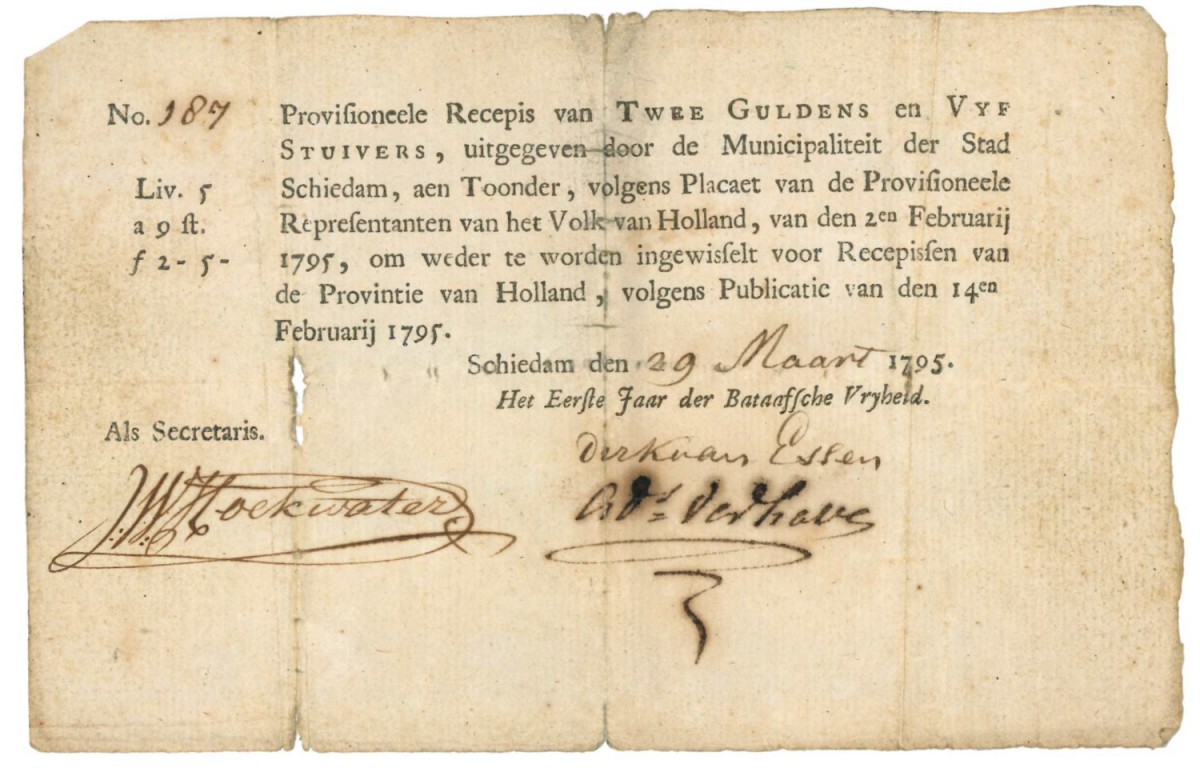 No. 187 Provisioneele Recepis van TWEE GULDENS en VYF
STUIVERS, uitgegeven door de Municipaliteit der Stad
Liv. 5 Schiedam, aen Toonder, volgens Placaet van de Provisioneele
a 9 st. Representanten van het Volk van Holland, van den 2en Februarij
f 2-5- 1795, om weder te worden ingewisselt voor Recepissen van
de Provintie van Holland, volgens Publicatie van den 14en
Februarij 1795.
Schiedam den 29 Maart 1795.
Het Eerste Jaar der Bataafsche Vryheid.
Als Secretaris.
Dirk van Essen
J:W: Hoekwater